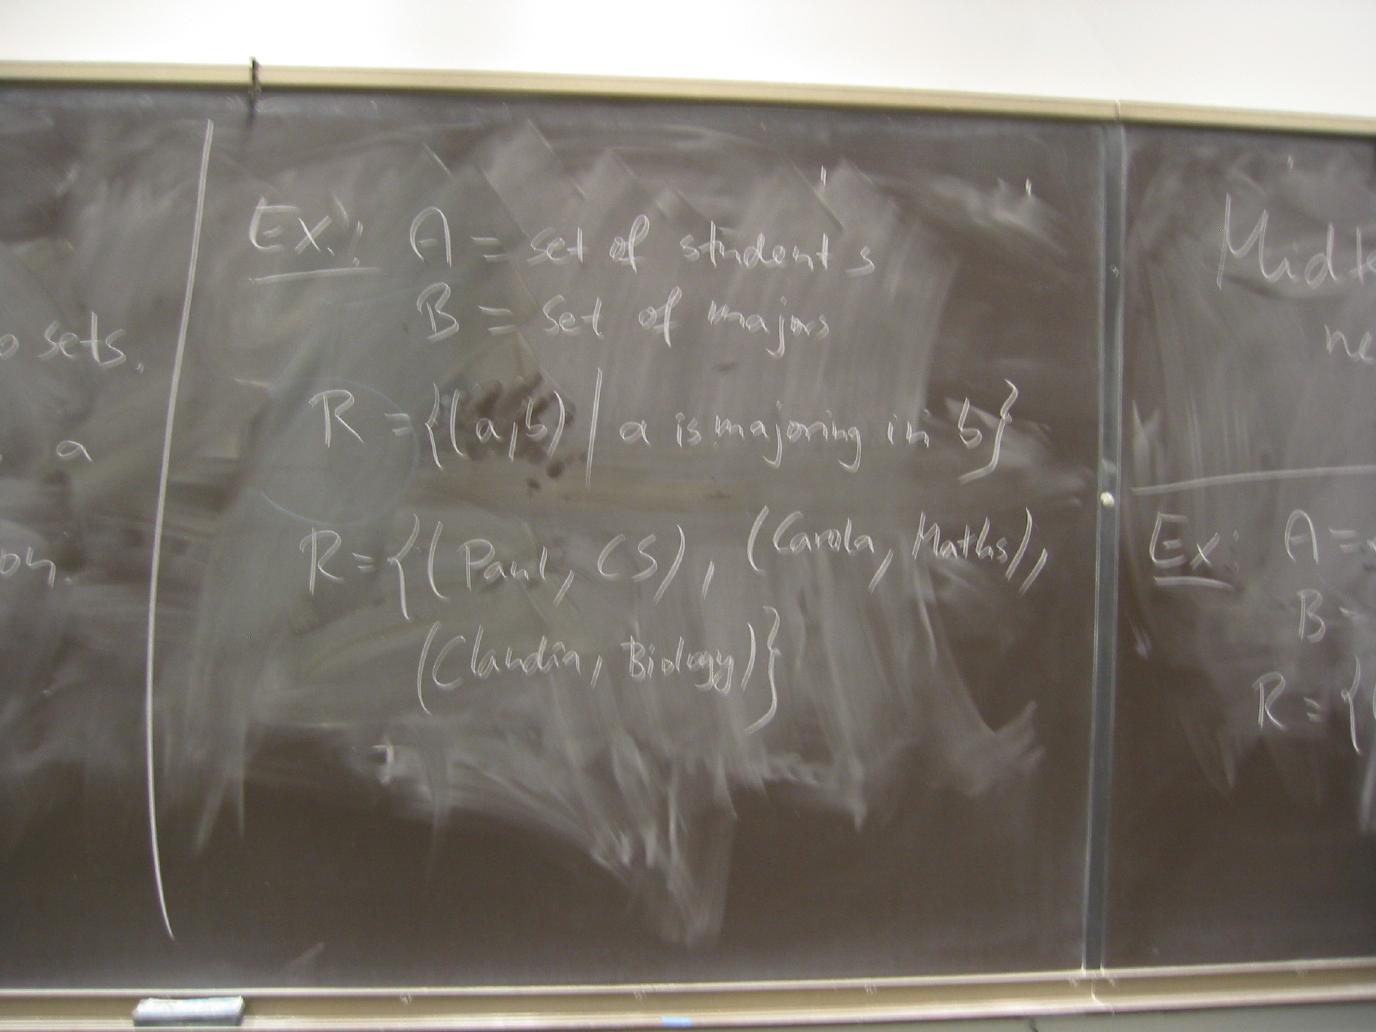 sets.
a
Ex: A = set of students
B = set of majors
R = {(a,b) | a is majoring in b}
R = {(Paul, CS), (Carola, Maths),
(Claudia, Biology)}
Ex: A =
B =
R = {(